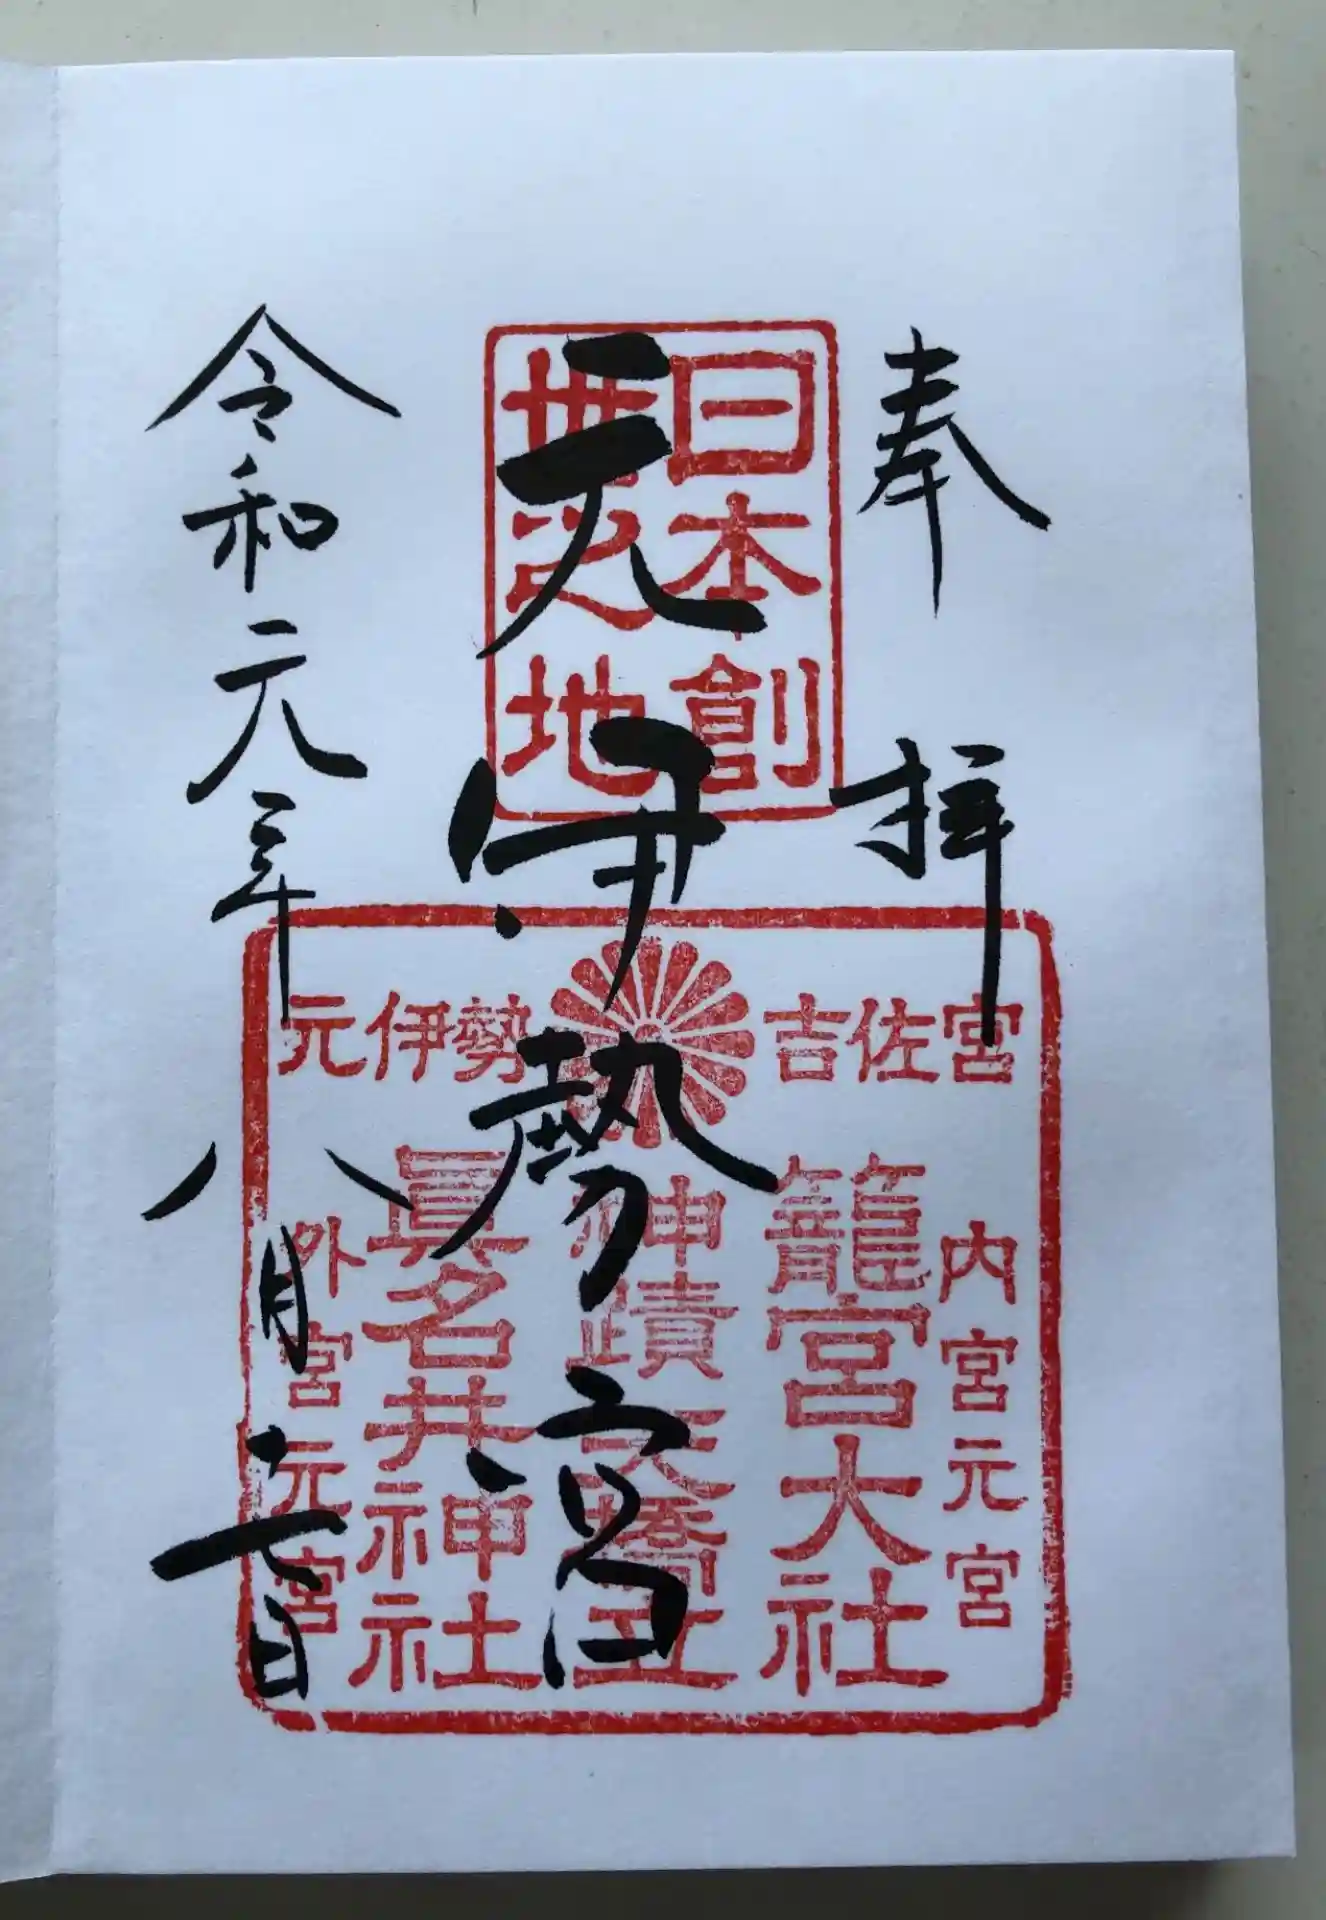 奉拝
日本創
丗之地
元伊勢宮
元伊勢 吉佐宮
内宮元宮
籠宮大社
神蹟天橋立
眞名井神社
外宮元宮
令和元年八月日